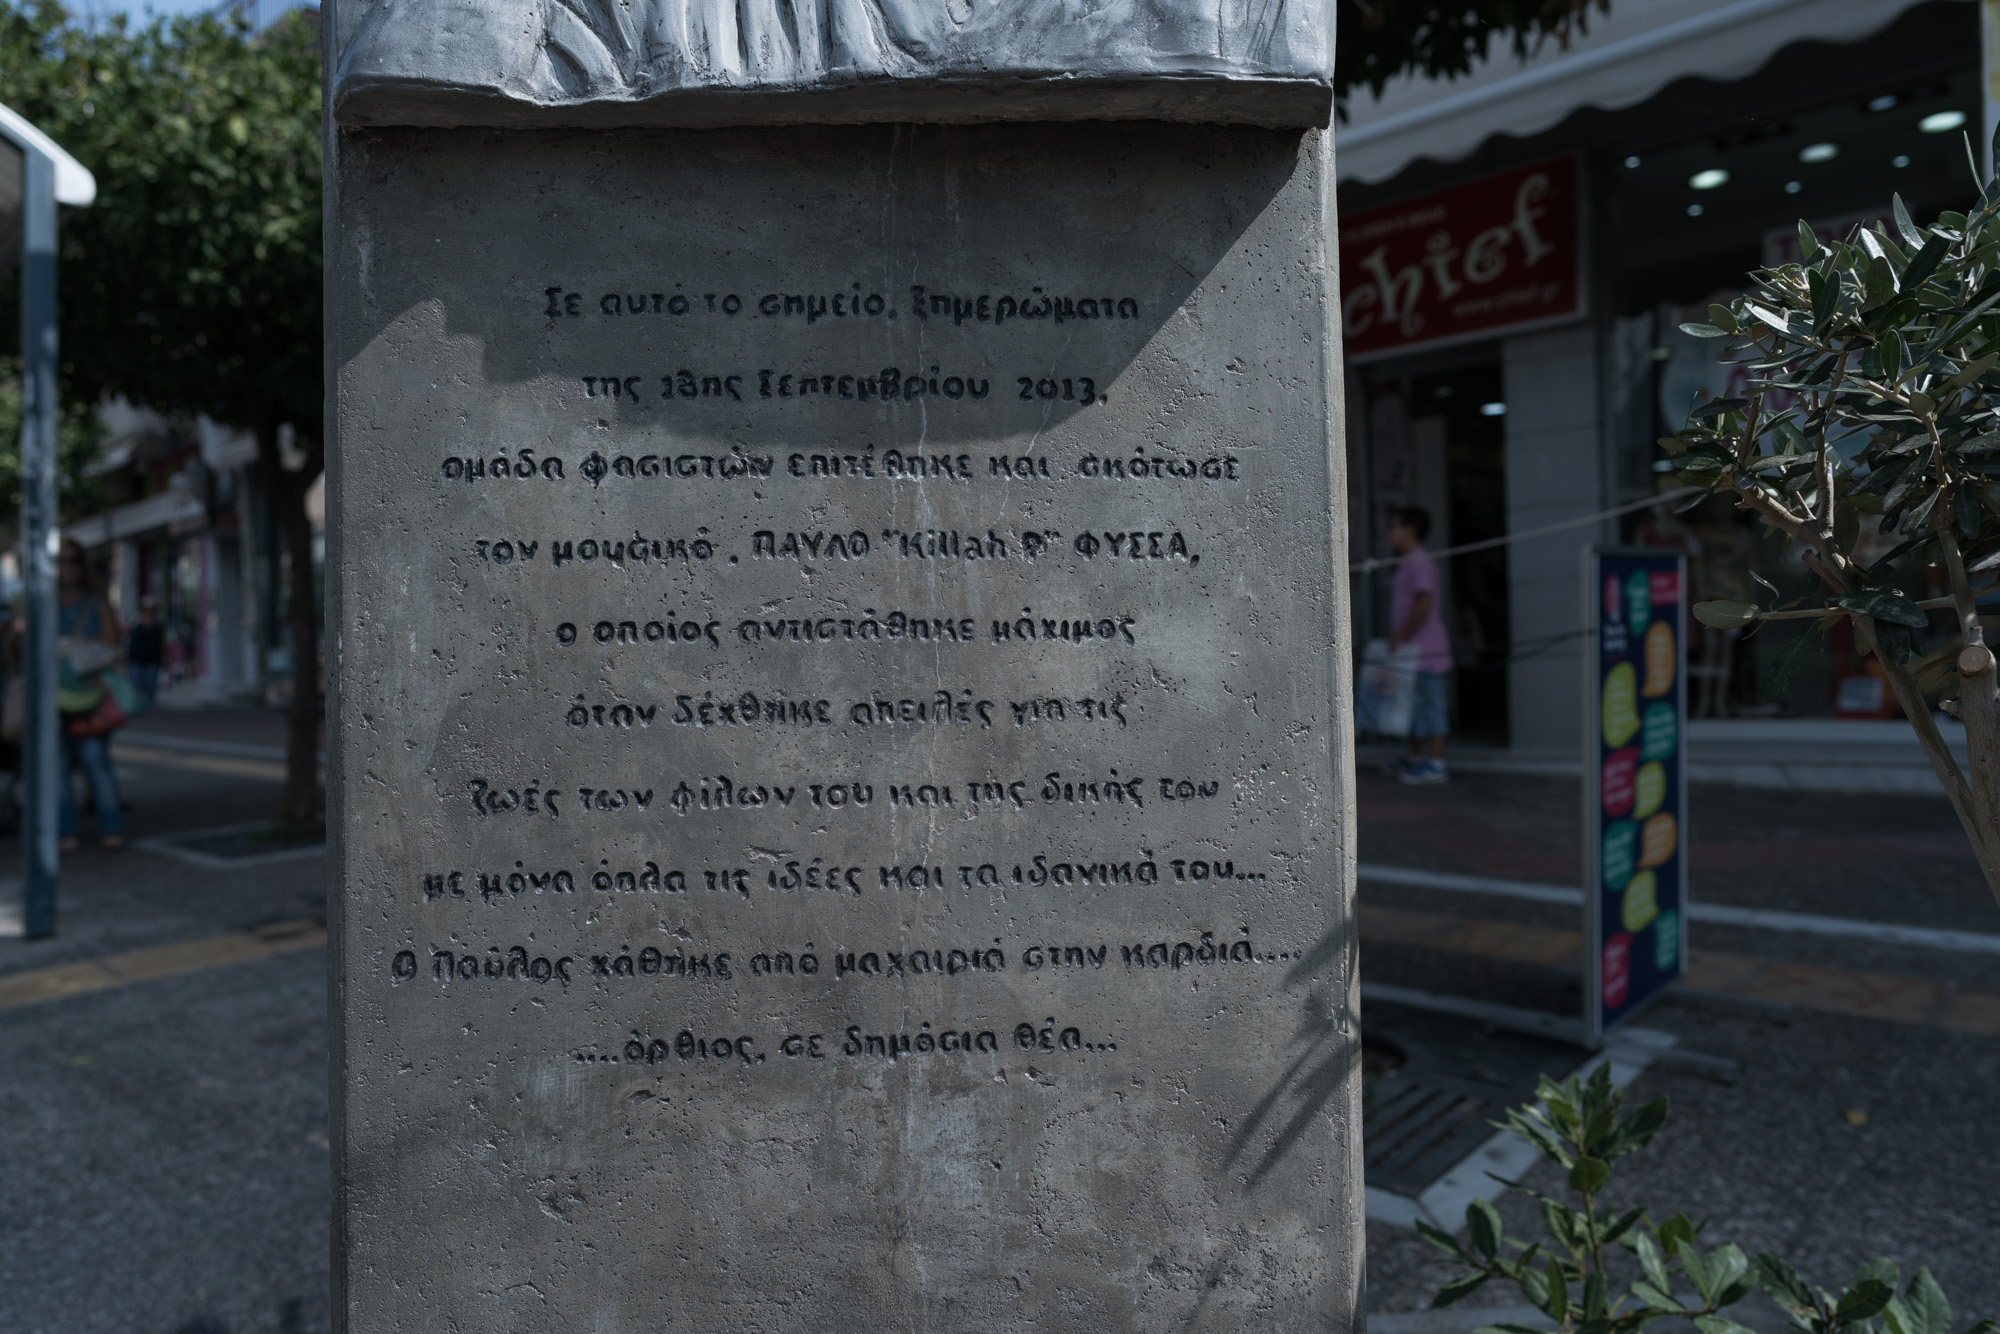 Σε αυτό το σημείο, ξημερώματα
της 18ης Σεπτεμβρίου 2013,
ομάδα φασιστών επιτέθηκε και σκότωσε
τον μουσικό, ΠΑΥΛΟ "Killah P" ΦΥΣΣΑ,
ο οποίος αντιστάθηκε μάχιμος
όταν δέχθηκε απειλές για τις
ζωές των φίλων του και της δικής του
με μόνα όπλα τις ιδέες και τα ιδανικά του...
Ο Παύλος χάθηκε από μαχαιριά στην καρδιά....
....όρθιος, σε δημόσια θέα...
chief
www.chief.gr